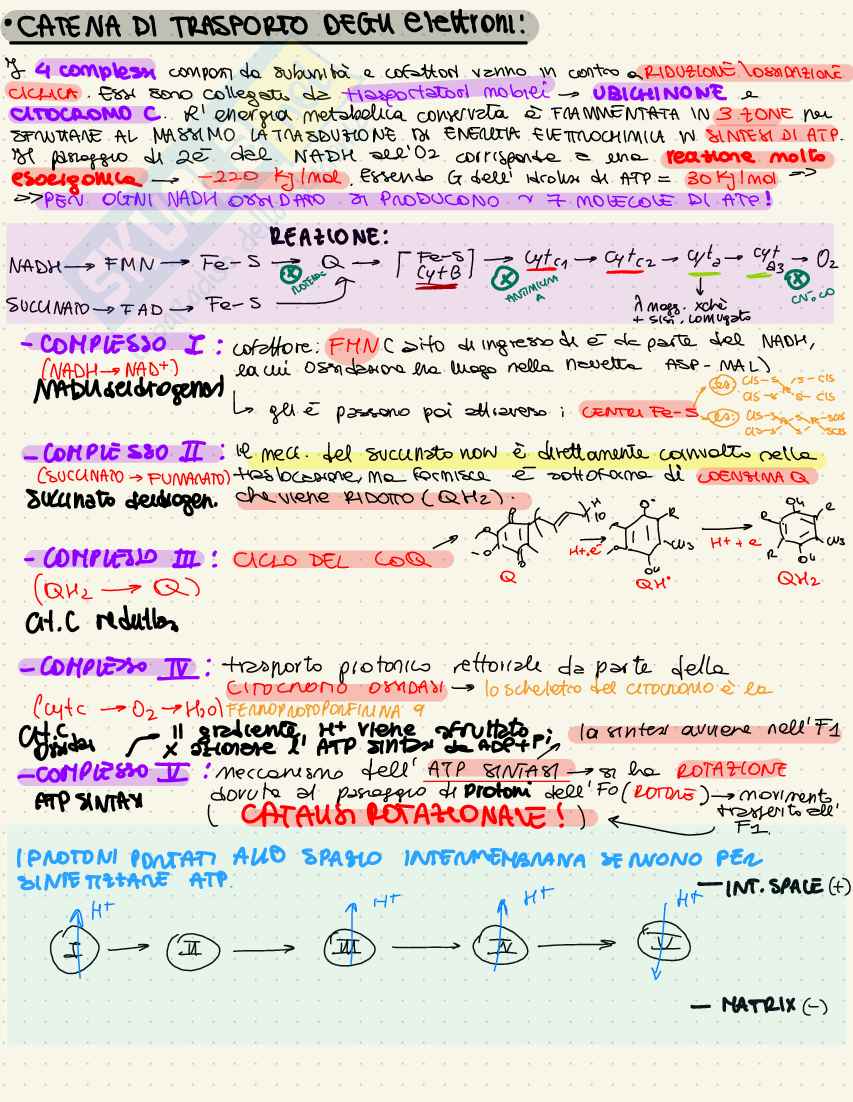 • CATENA DI TRASPORTO DEGLI elettroni:
I 4 complessi composti da subunità e cofattori vanno in contro a RIDUZIONE/OSSIDAZIONE
CICLICA. Essi sono collegati da trasportatori mobili → UBICHINONE e
CITOCROMO C. L'energia metabolica conservata è FRAMMENTATA IN 3 ZONE per
SFRUTTARE AL MASSIMO LA TRASDUZIONE DI ENERGIA ELETTROCHIMICA IN SINTESI DI ATP.
Il passaggio di 2e⁻ dal NADH all'O2 corrisponde a una reazione molto
esoergonica → -220 Kj/mol. Essendo G dell'idrolisi di ATP = 30 Kj/mol =>
=> PER OGNI NADH OSSIDATO SI PRODUCONO ~ 7 MOLECOLE DI ATP!
REAZIONE:
NADH → FMN → Fe-S → Q → [Fe-S Cyt B] → Cyt c1 → Cyt c2 → Cyt a → Cyt a3 → O2
X ROTENONE X ANTIMICINA A X CN⁻, CO
SUCCINATO → FAD → Fe-S
λ magg. xchè
+ sist. coniugato
- COMPLESSO I: cofattore: FMN (sito di ingresso di e⁻ da parte del NADH,
(NADH → NAD+) la cui ossidazione ha luogo nella navetta ASP-MAL)
NADH deidrogenasi
↳ gli e⁻ passano poi attraverso i CENTRI Fe-S
es: CIS-S S-CIS
CIS-S S-CIS
es: CIS-S S S-CIS
CIS-S S S-CIS
- COMPLESSO II: il mecc. del succinato non è direttamente coinvolto nella
(SUCCINATO → FUMARATO) traslocazione, ma fornisce e⁻ sottoforma di COENZIMA Q
Succinato deidrogen. che viene RIDOTTO (QH2).
- COMPLESSO III: CICLO DEL CoQ
(QH2 → Q)
Cit. C reduttasi
H 10 O• R CH3 OH R CH3 R OH
H+, e⁻ H+ + e
Q QH• QH2
- COMPLESSO IV: trasporto protonico vettoriale da parte della
CITOCROMO OSSIDASI → lo scheletro del CITOCROMO è la
(cyt c → O2 → H2O) FERROPROTOPORFIRINA 9
Cit. C ossidasi
Il gradiente H+ viene sfruttato
x azionare l'ATP sintasi da ADP+Pi
la sintesi avviene nell'F1
- COMPLESSO V: meccanismo dell'ATP SINTASI → si ha ROTAZIONE
ATP SINTASI dovuta al passaggio di protoni dell'F0 (ROTORE) → movimento
trasferito all'
F1
(CATALISI ROTAZIONALE!)
I PROTONI PORTATI ALLO SPAZIO INTERMEMBRANA SERVONO PER
SINTETIZZARE ATP.
— INT. SPACE (+)
H+ H+ H+ H+
I → II → III → IV → V
— MATRIX (-)